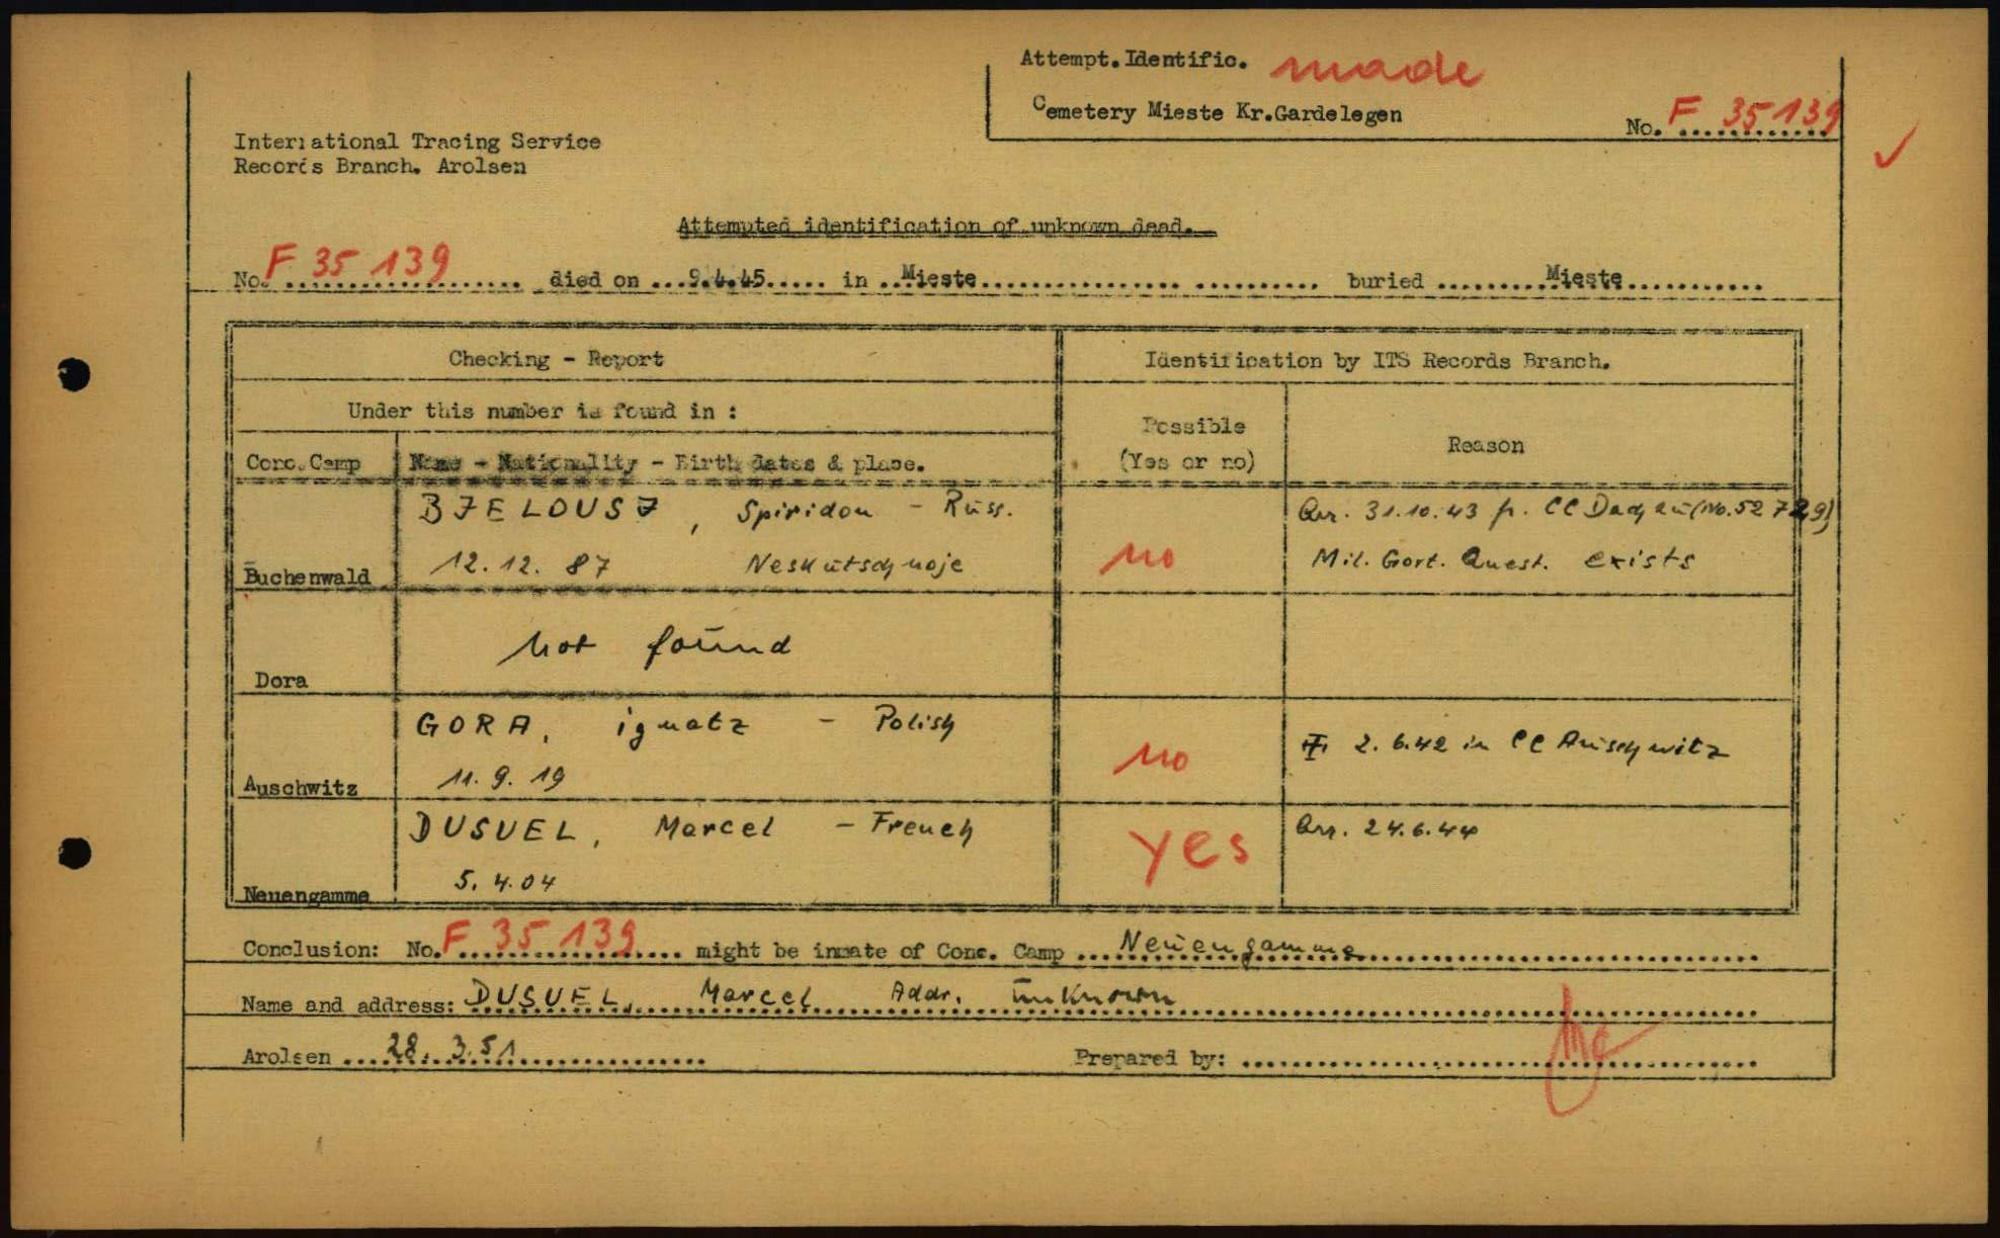 Attempt. Identific. made
Cemetery Mieste Kr.Gardelegen
No. F 35139
International Tracing Service
Records Branch. Arolsen
Attempted identification of unknown dead.
No. F 35 139 died on 9.4.45. in Mieste buried Mieste
Checking - Report
Identification by ITS Records Branch.
Under this number is found in :
Possible
(Yes or no)
Reason
Conc. Camp
Name - Nationality - Birth dates & place.
BJELOUSJ, Spiridon - Russ.
12.12.87 Neskutschnoje
Buchenwald
no
Arr. 31.10.43 fr. CC Dachau (No. 52729)
Mil. Gort. Quest. exists
not found
Dora
GORA, ignatz - Polish
11.9.19
Auschwitz
no
2.6.42 in CC Auschwitz
DUSUEL, Marcel - French
5.4.04
Neuengamme
yes
Arr. 24.6.44
Conclusion: No. F 35 139 might be inmate of Conc. Camp Neuengamme
Name and address: DUSUEL, Marcel Addr. unknown
Arolsen 28.3.51
Prepared by: